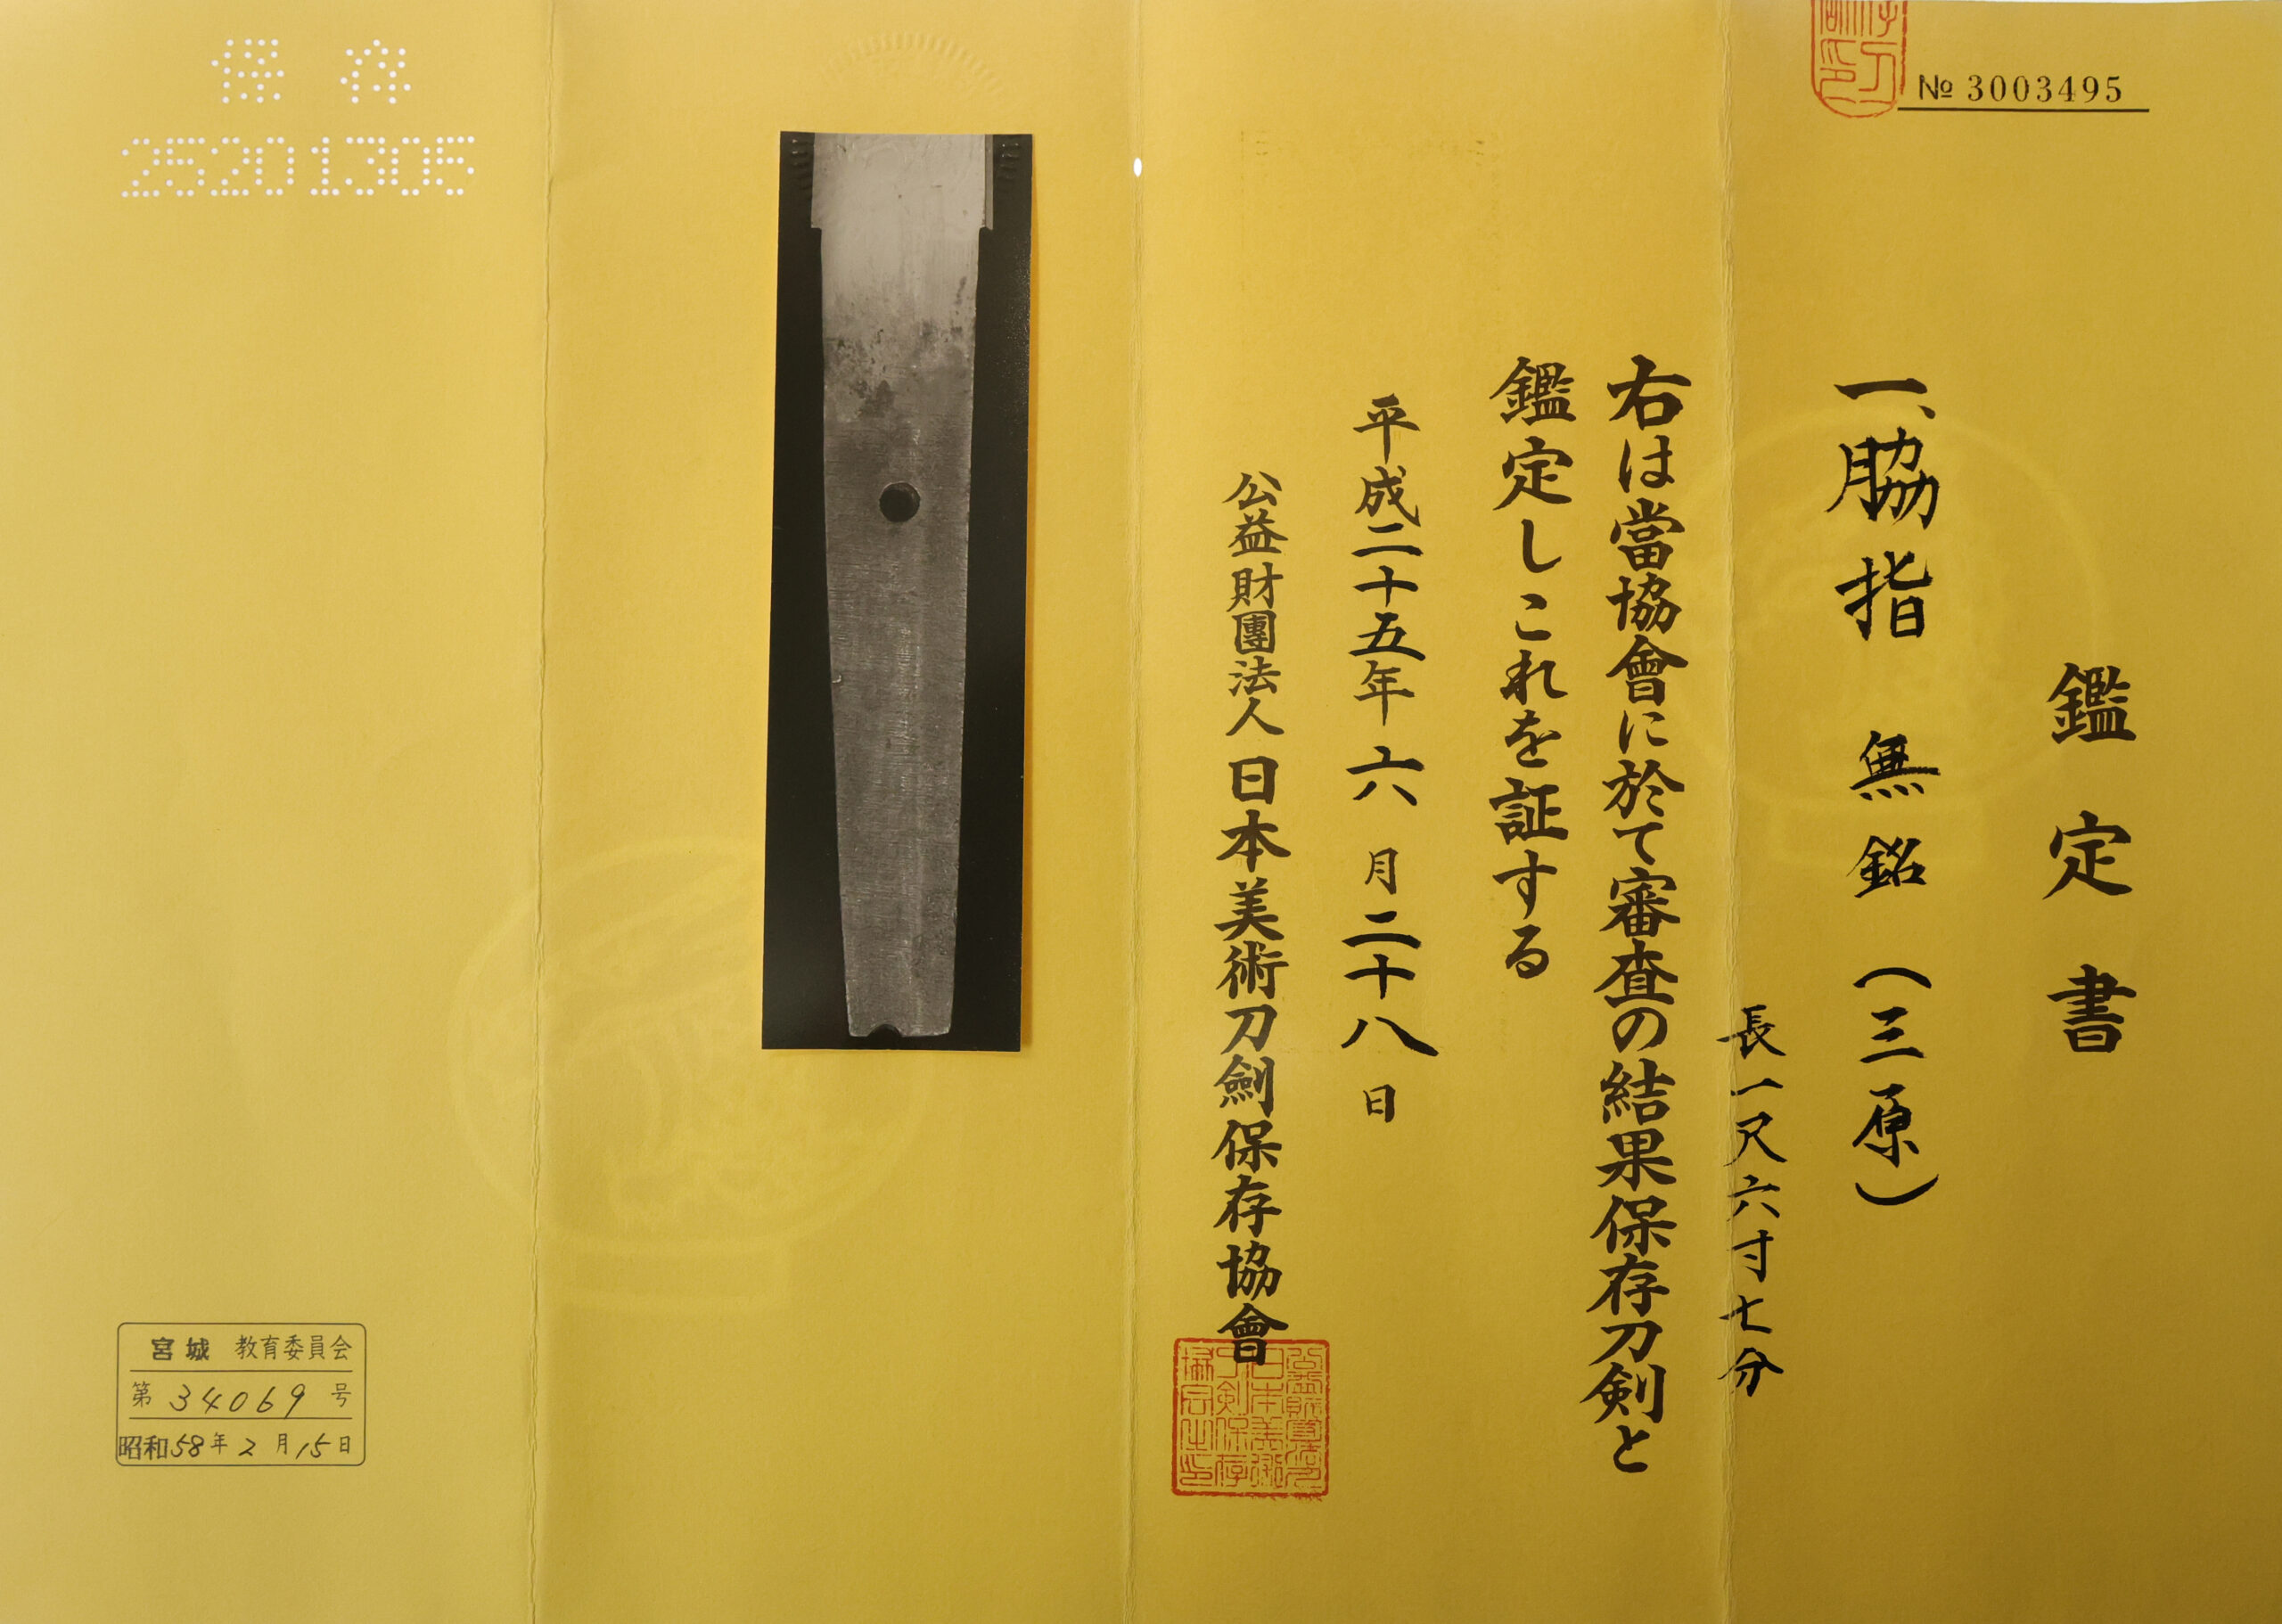 № 3003495
鑑定書
一、脇指 無銘(三原)
長一尺六寸七分
右は當協會に於て審査の結果保存刀剣と
鑑定しこれを証する
平成二十五年六月二十八日
公益財團法人日本美術刀劍保存協會
保存
25201305
宮城 教育委員会
第 34069 号
昭和58年2月15日